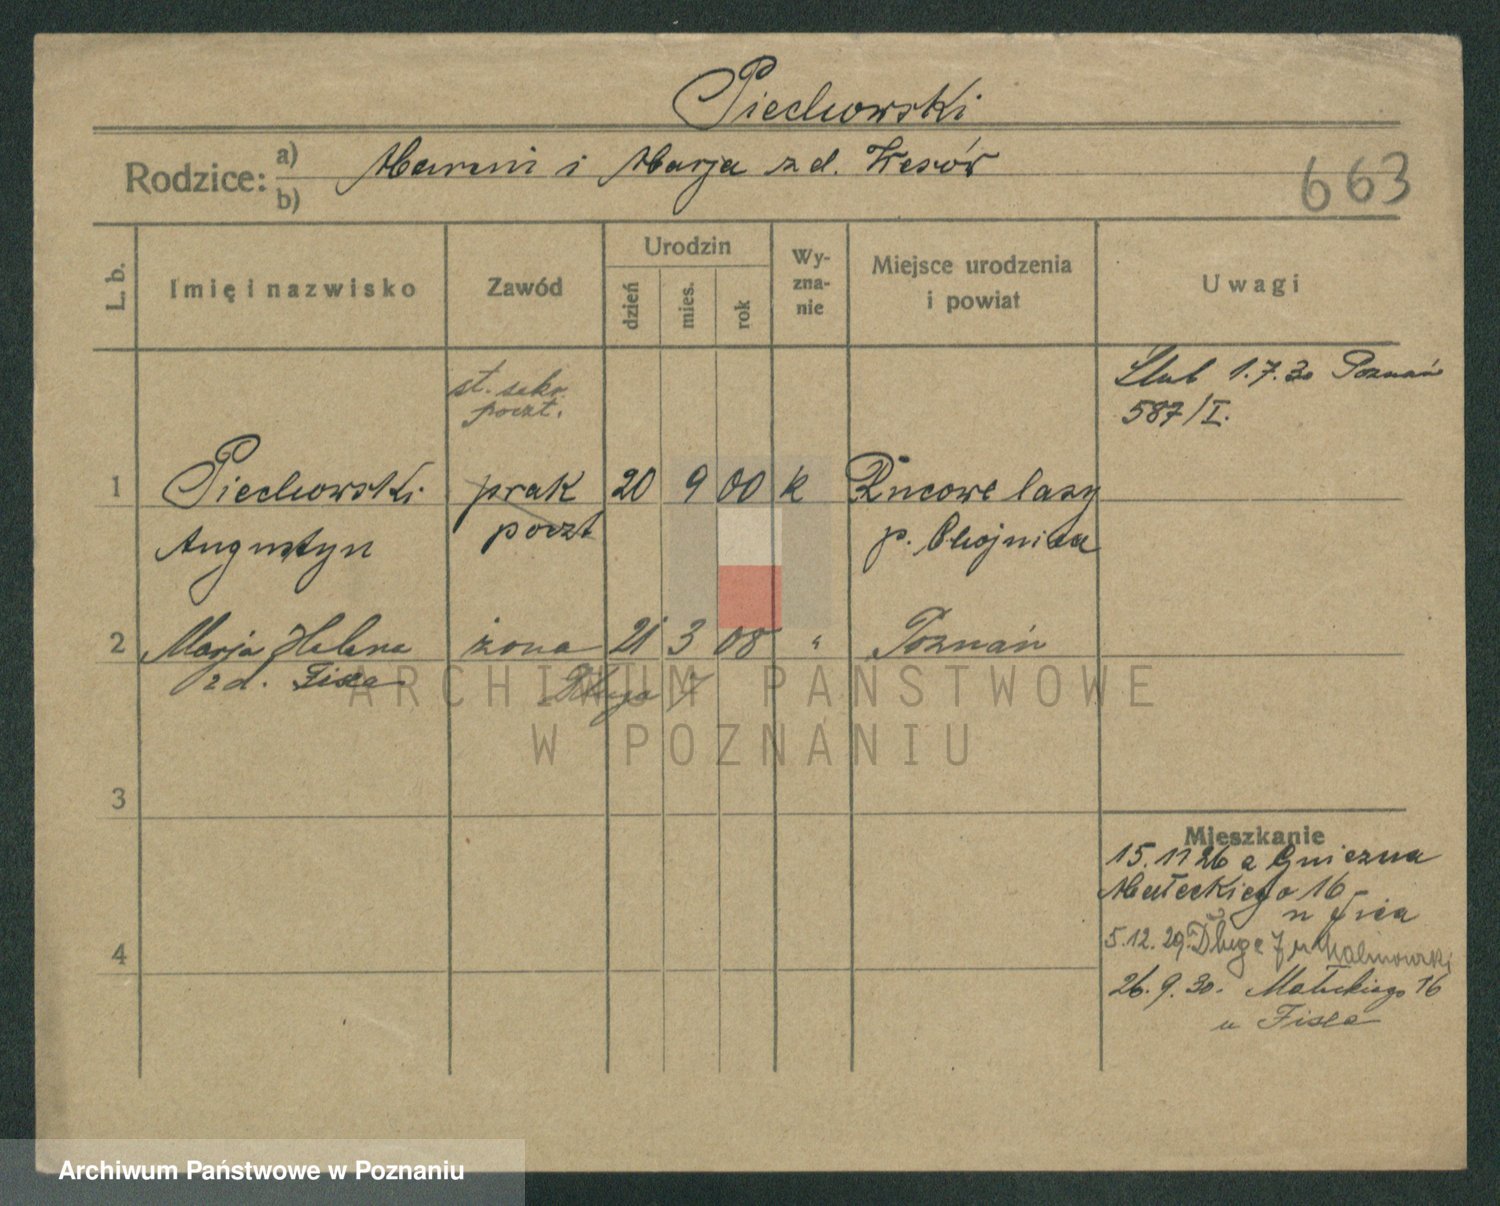 Piechowski
Rodzice: a) b) Marcin i Marja z d. Wesów
663
L. b.
Imię i nazwisko
Zawód
Urodzin
dzień
mies.
rok
Wy-
zna-
nie
Miejsce urodzenia
i powiat
Uwagi
st. sekr.
poczt.
Ślub 1.7.30 Poznań
587/I.
1 Piechowski prak 20 9 00 k lasy
Augustyn poczt p. Chojnice
2 Marja Helena żona 21 3 08 " Poznań
z d. Fisza
Długa 7
3
4
Mieszkanie
15.11 26 z Gniezna
Małeckiego 16
u
5.12.29. Długa 7 u Malinowski
26.9.30. Małeckiego 16
u Fisza
ARCHIWUM PAŃSTWOWE
W POZNANIU
Archiwum Państwowe w Poznaniu